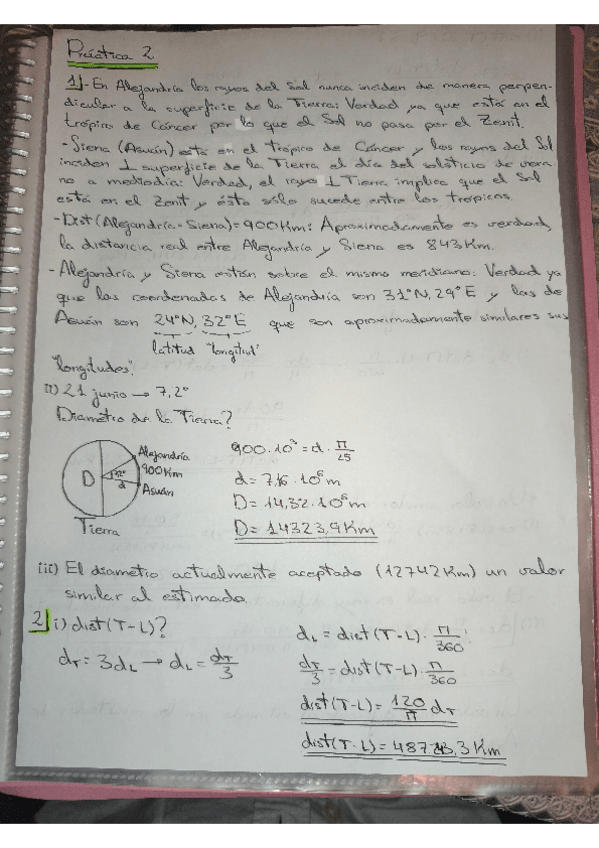 Práctica 2
1 - En Alejandría los rayos del Sol nunca inciden de manera perpen-
dicular a la superficie de la Tierra: Verdad, ya que está en el
trópico de Cáncer por lo que el Sol no pasa por el Zenit.
- Siena (Asuán) está en el Trópico de Cáncer y los rayos del Sol
inciden ⊥ superficie de la Tierra el día del solsticio de vera
no a mediodía: Verdad, el rayo ⊥ Tierra implica que el Sol
está en el Zenit y ésto sólo sucede entre los trópicos.
- Dist (Alejandría - Siena) = 900 Km: Aproximadamente es verdad,
la distancia real entre Alejandría y Siena es 843 Km.
- Alejandría y Siena están sobre el mismo meridiano: Verdad ya
que las coordenadas de Alejandría son 31°N, 29°E y las de
Asuán son 24°N, 32°E que son aproximadamente similares sus
latitud "longitud"
"longitudes".
ii) 21 junio → 7,2°
Diametro de la Tierra?
Alejandría
900 Km
D
d
Asuán
Tierra
900 · 10³ = d · π/25
d = 7,16 · 10⁶ m
D = 14,32 · 10⁶ m
D = 14323,9 Km
iii) El diametro actualmente aceptado (12742 Km) un valor
similar al estimado.
2 i) dist (T-L)?
d_T = 3d_L → d_L = d_T/3
d_L = dist (T-L) · π/360
d_T/3 = dist (T-L) · π/360
dist (T-L) = 120/π d_T